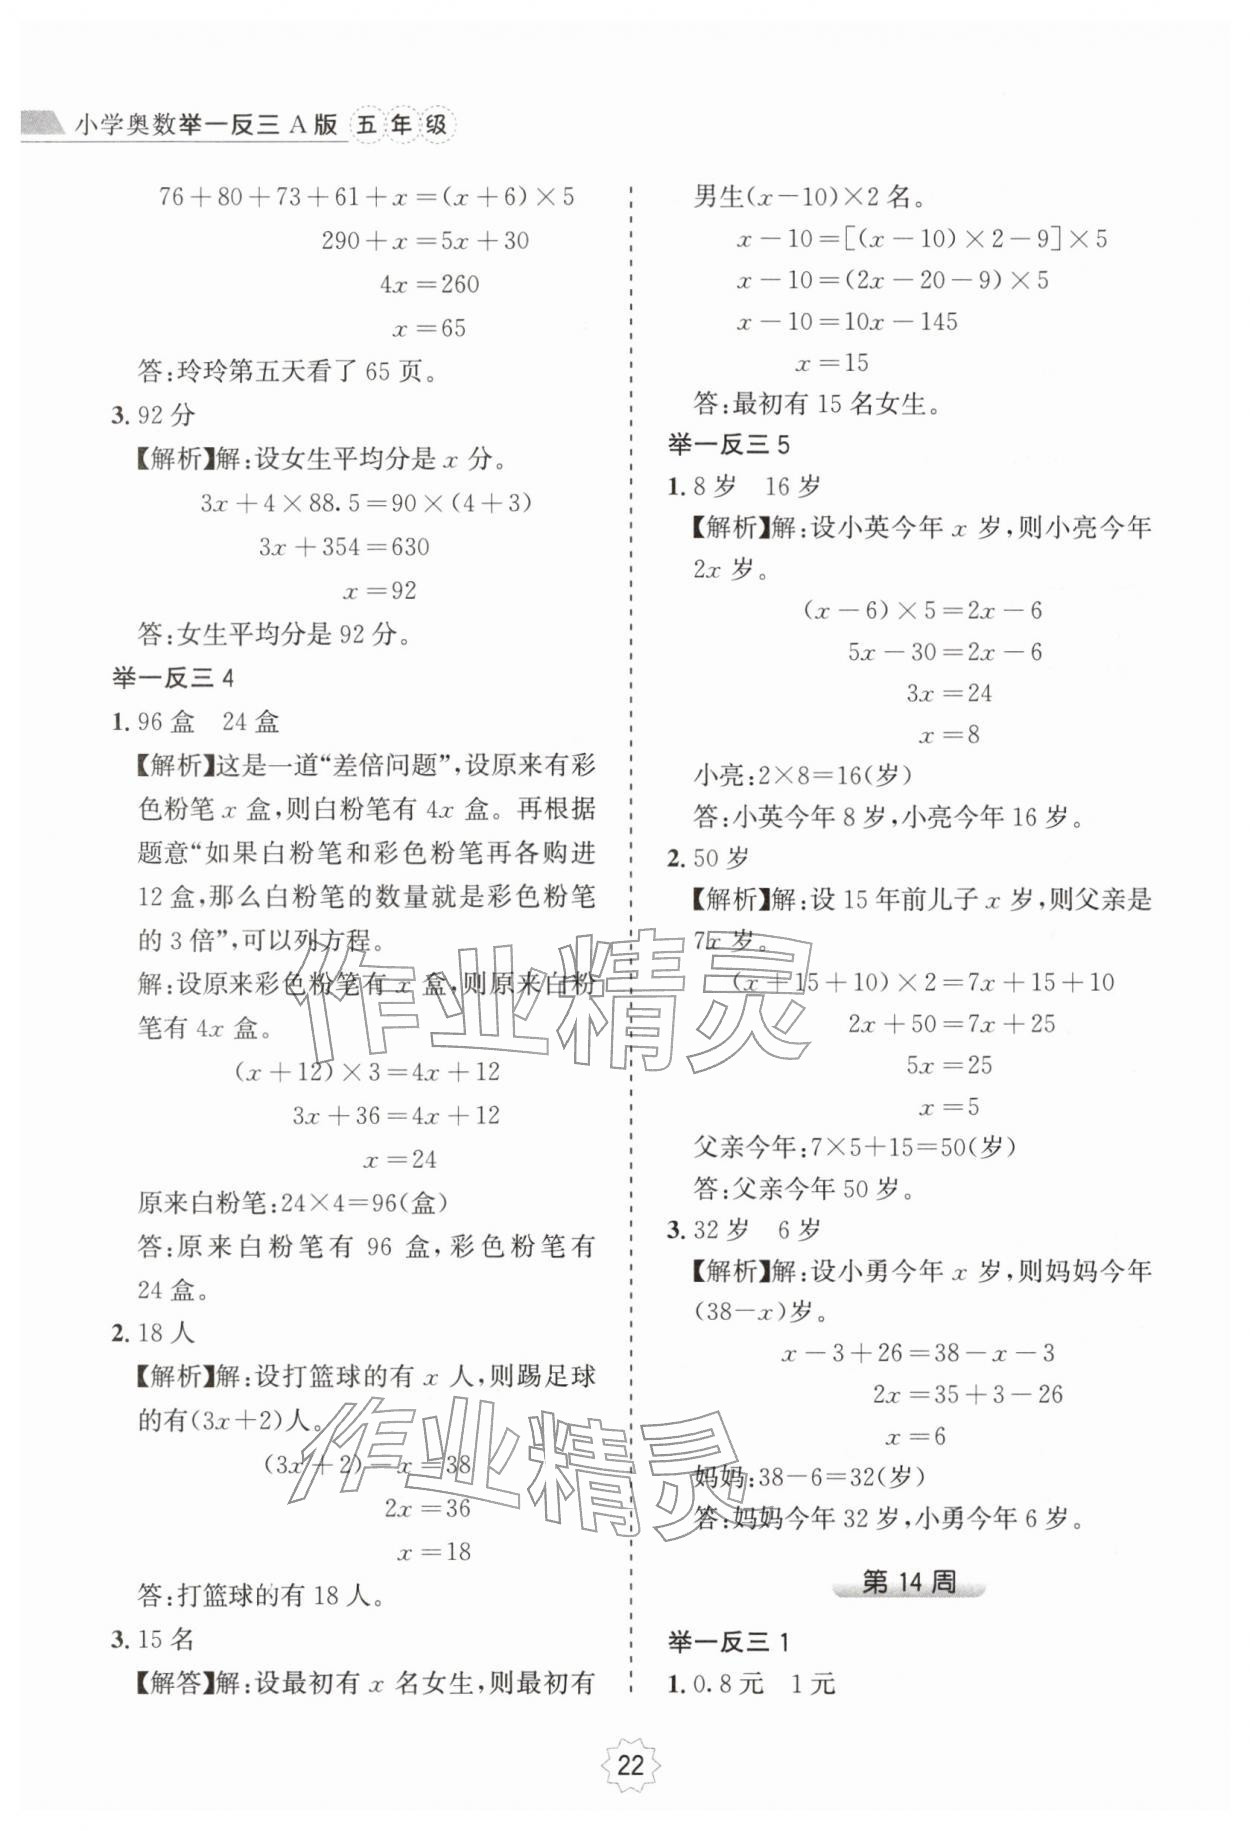 小学奥数举一反三 A 版 五年级
76+80+73+61+x=(x+6)×5
290+x=5x+30
4x=260
x=65
答:玲玲第五天看了 65 页。
3. 92 分
【解析】解:设女生平均分是 x 分。
3x+4×88.5=90×(4+3)
3x+354=630
x=92
答:女生平均分是 92 分。
举一反三 4
1. 96 盒　24 盒
【解析】这是一道“差倍问题”,设原来有彩
色粉笔 x 盒,则白粉笔有 4x 盒。再根据
题意“如果白粉笔和彩色粉笔再各购进
12 盒,那么白粉笔的数量就是彩色粉笔
的 3 倍”,可以列方程。
解:设原来彩色粉笔有 x 盒,则原来白粉
笔有 4x 盒。
(x+12)×3=4x+12
3x+36=4x+12
x=24
原来白粉笔:24×4=96(盒)
答:原来白粉笔有 96 盒,彩色粉笔有
24 盒。
2. 18 人
【解析】解:设打篮球的有 x 人,则踢足球
的有(3x+2)人。
(3x+2)-x=38
2x=36
x=18
答:打篮球的有 18 人。
3. 15 名
【解答】解:设最初有 x 名女生,则最初有
男生(x-10)×2 名。
x-10=[(x-10)×2-9]×5
x-10=(2x-20-9)×5
x-10=10x-145
x=15
答:最初有 15 名女生。
举一反三 5
1. 8 岁　16 岁
【解析】解:设小英今年 x 岁,则小亮今年
2x 岁。
(x-6)×5=2x-6
5x-30=2x-6
3x=24
x=8
小亮:2×8=16(岁)
答:小英今年 8 岁,小亮今年 16 岁。
2. 50 岁
【解析】解:设 15 年前儿子 x 岁,则父亲是
7x 岁。
(x+15+10)×2=7x+15+10
2x+50=7x+25
5x=25
x=5
父亲今年:7×5+15=50(岁)
答:父亲今年 50 岁。
3. 32 岁　6 岁
【解析】解:设小勇今年 x 岁,则妈妈今年
(38-x)岁。
x-3+26=38-x-3
2x=35+3-26
x=6
妈妈:38-6=32(岁)
答:妈妈今年 32 岁,小勇今年 6 岁。
第 14 周
举一反三 1
1. 0.8 元　1 元
22
作业精灵
作业精灵